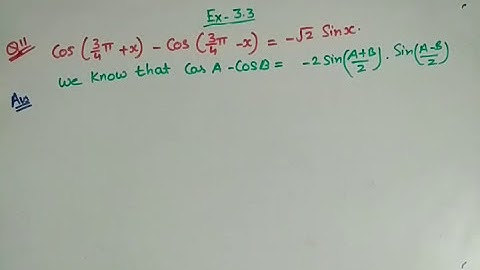 Ex-3.3
Q11 cos (3/4 π +x) - cos (3/4 π -x) = -√2 Sinx.
we know that Cos A - CosB = -2 Sin(A+B/2) . Sin(A-B/2)
Ans